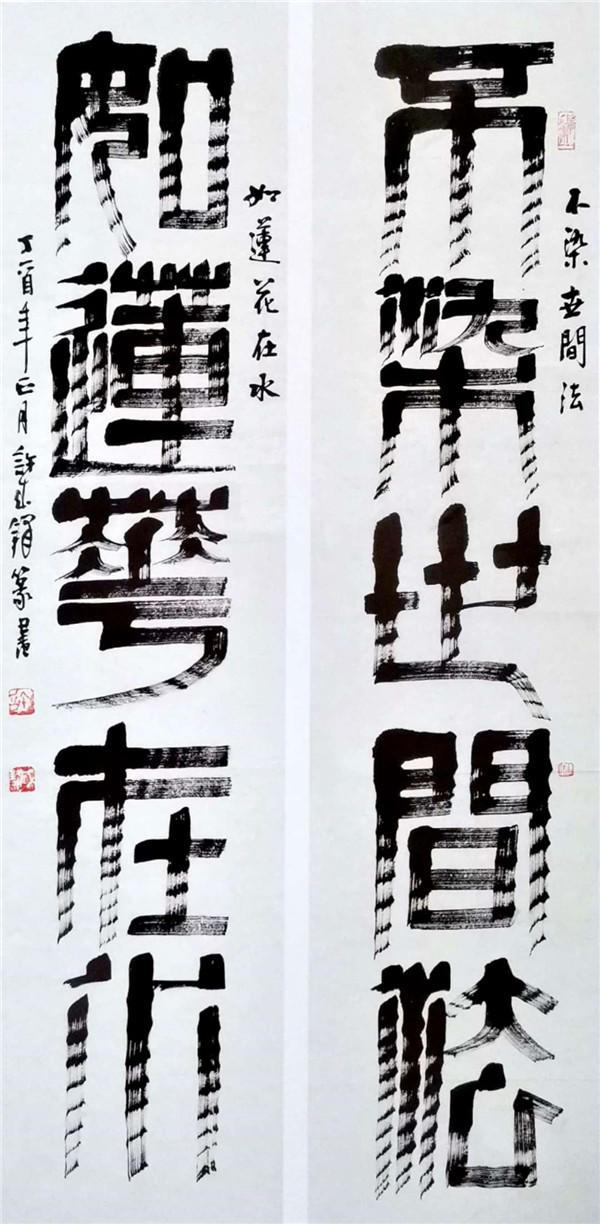 不染世間法
不染世間法
如蓮花在水
如蓮華在水
丁酉年正月許篆書